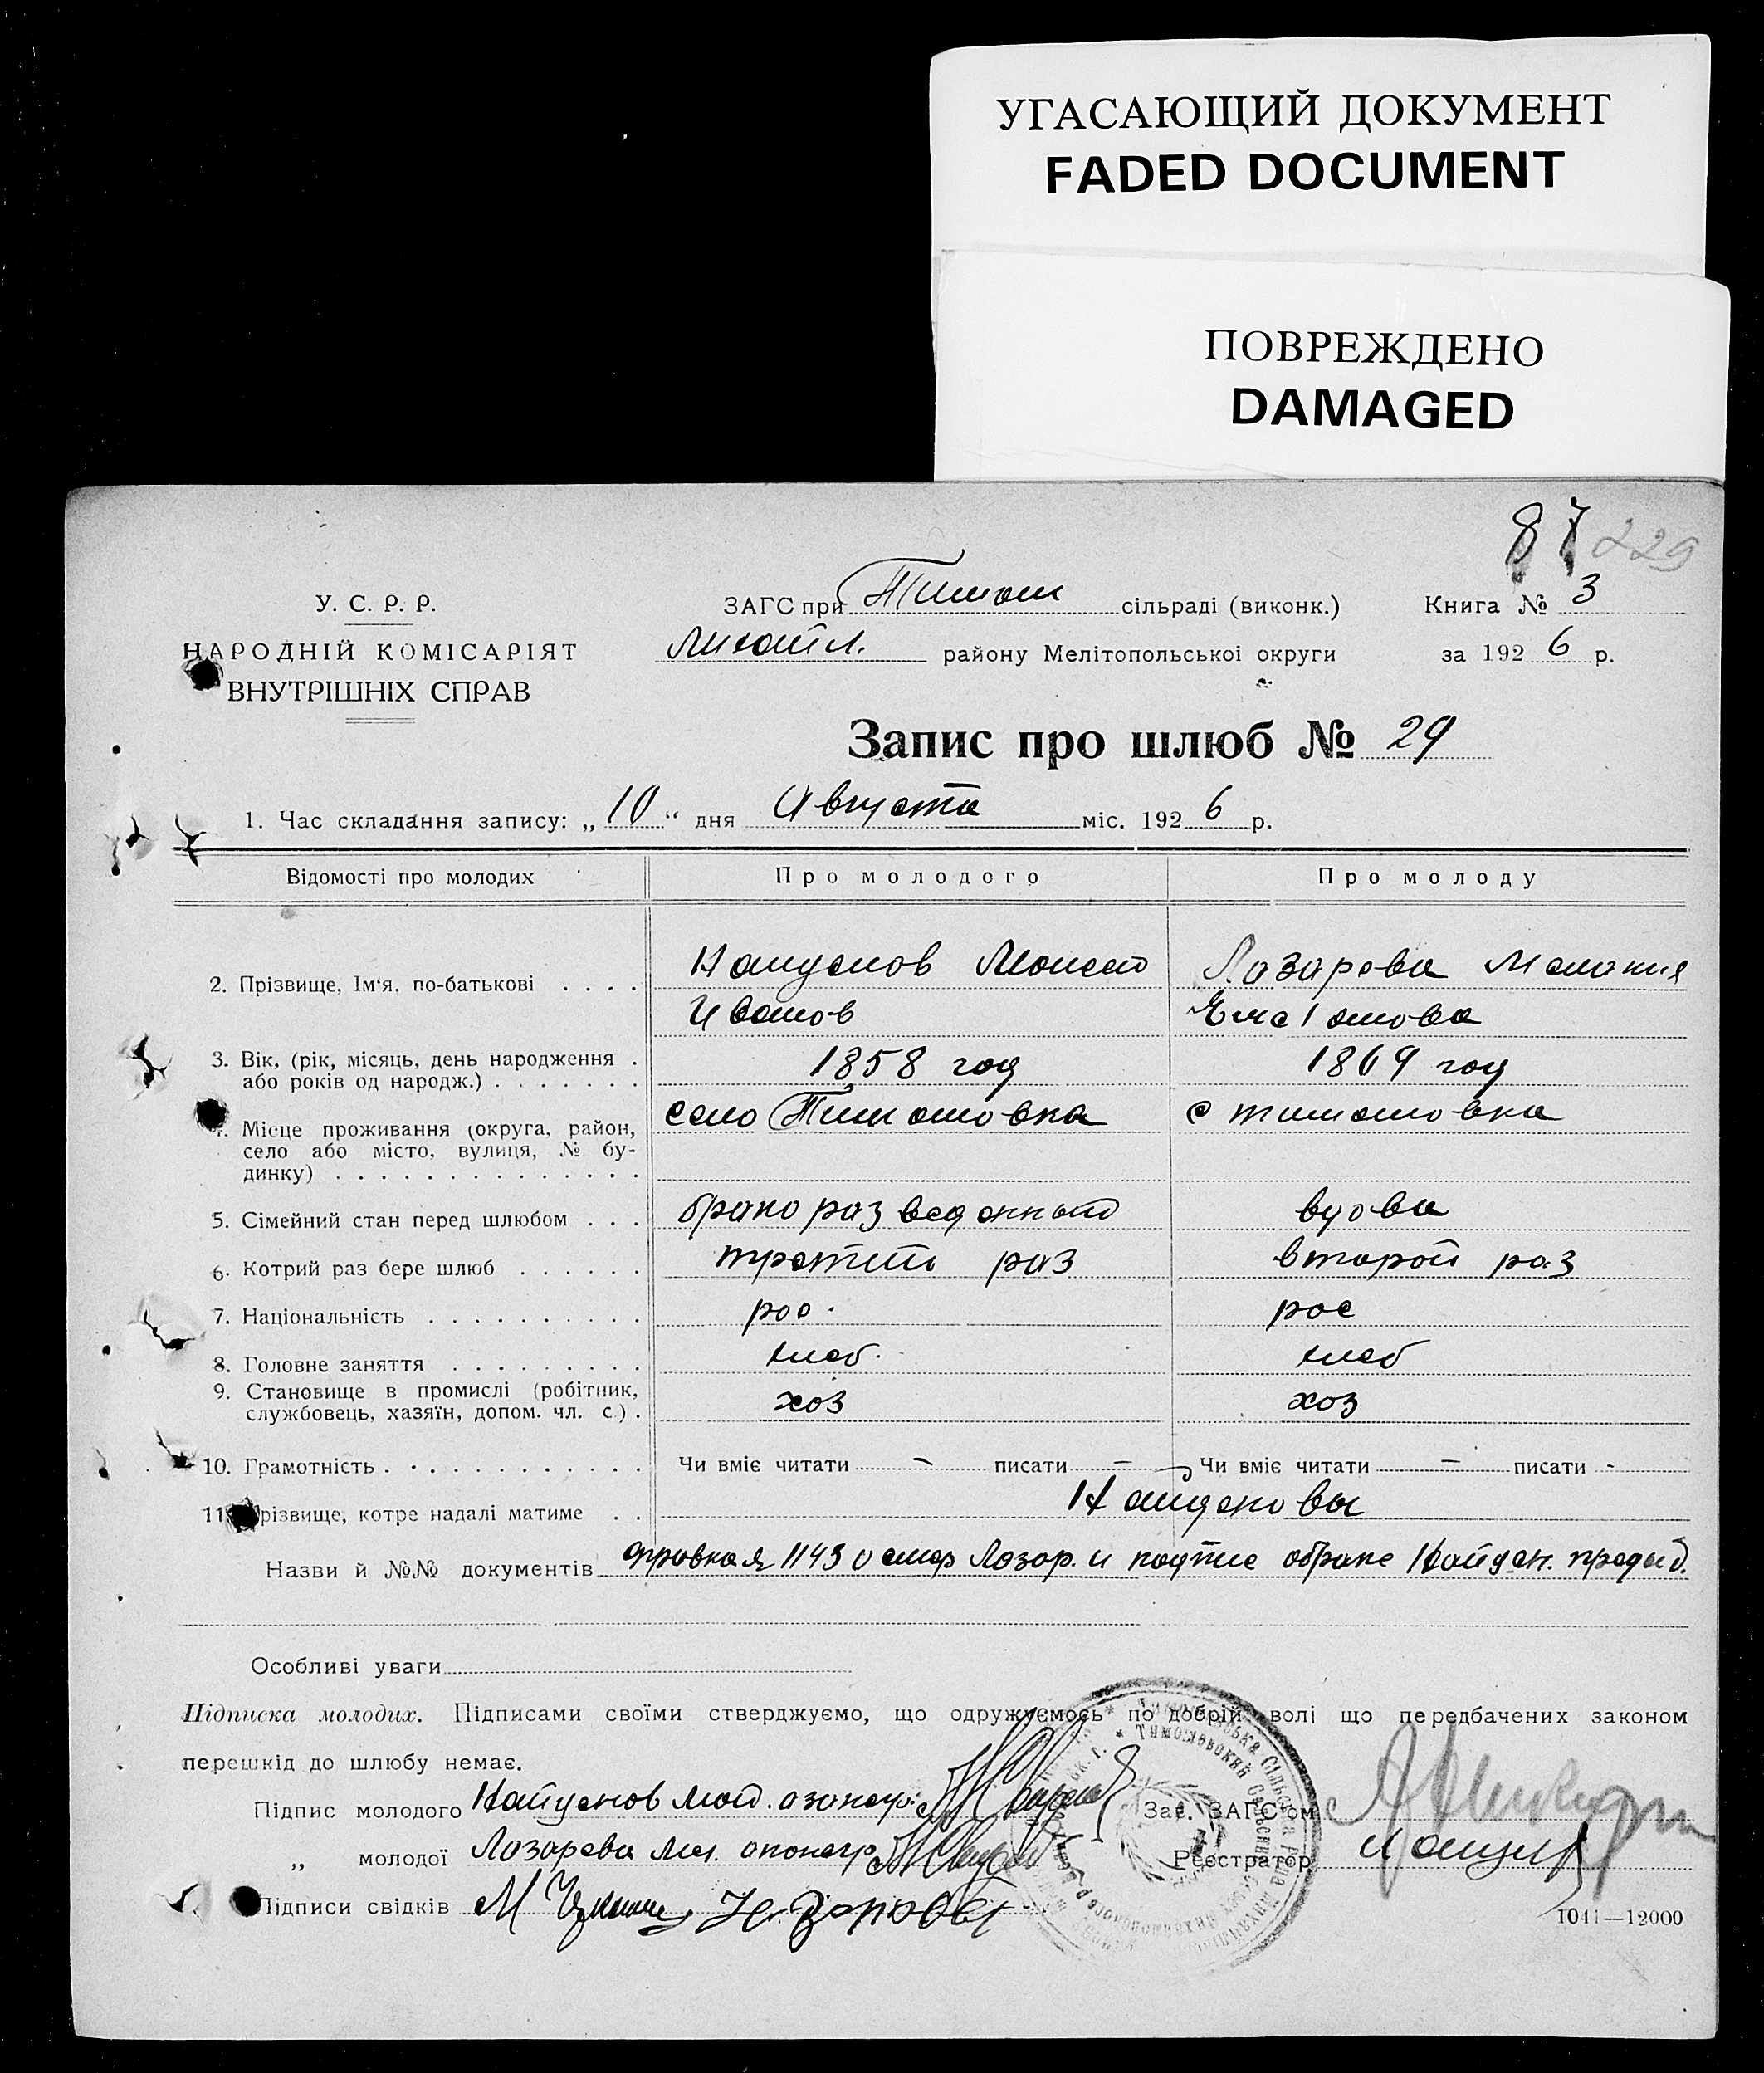 УГАСАЮЩИЙ ДОКУМЕНТ
FADED DOCUMENT
ПОВРЕЖДЕНО
DAMAGED
87 229
У. С. Р. Р.
НАРОДНІЙ КОМІСАРІЯТ
ВНУТРІШНІХ СПРАВ
ЗАГС при Тимош сільраді (виконк.) Книга № 3
Михайл. району Мелітопольської округи за 1926 р.
Запис про шлюб № 29
1. Час складання запису: „10“ дня Августа міс. 1926 р.
Відомості про молодих Про молодого Про молоду
2. Прізвище, Ім‘я, по-батькові . . . . Найденов Моисей Лазарева Мелания
Иванов
3. Вік, (рік, місяць, день народження . або років од народж.) . . . . . . . 1858 год 1869 год
4. Місце проживання (округа, район, село або місто, вулиця, № будинку) . . . . . . . . . . . . . . село Тимошовка с тимошовка
5. Сімейний стан перед шлюбом . . . бракоразведенный вдова
6. Котрий раз бере шлюб . . . . . . третий раз второй раз
7. Національність . . . . . . . . . . рос. рос
8. Головне заняття . . . . . . . . . хлеб. хлеб
9. Становище в промислі (робітник, службовець, хазяїн, допом. чл. с.) . хоз хоз
10. Грамотність . . . . . . . . . . . . Чи вміє читати – писати – Чи вміє читати – писати -
11. Прізвище, котре надалі матиме . . Найденовы
Назви й №№ документів справка 1143 о смер Лазар. и Найден.
Особливі уваги
Підписка молодих. Підписами своїми стверджуємо, що одружуємось по добрій волі що передбачених законом
перешкід до шлюбу немає.
Підпис молодого Найденов Мой. Зав. ЗАГС‘ом
„ молодої Лазарева Мел. Реєстратор
Підписи свідків М
1041—12000